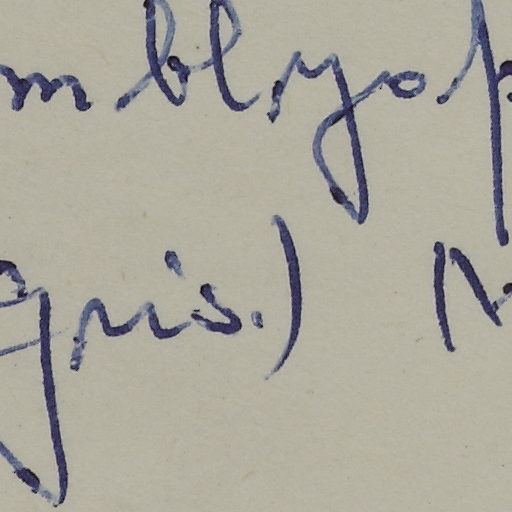 mblyop
gris.) N